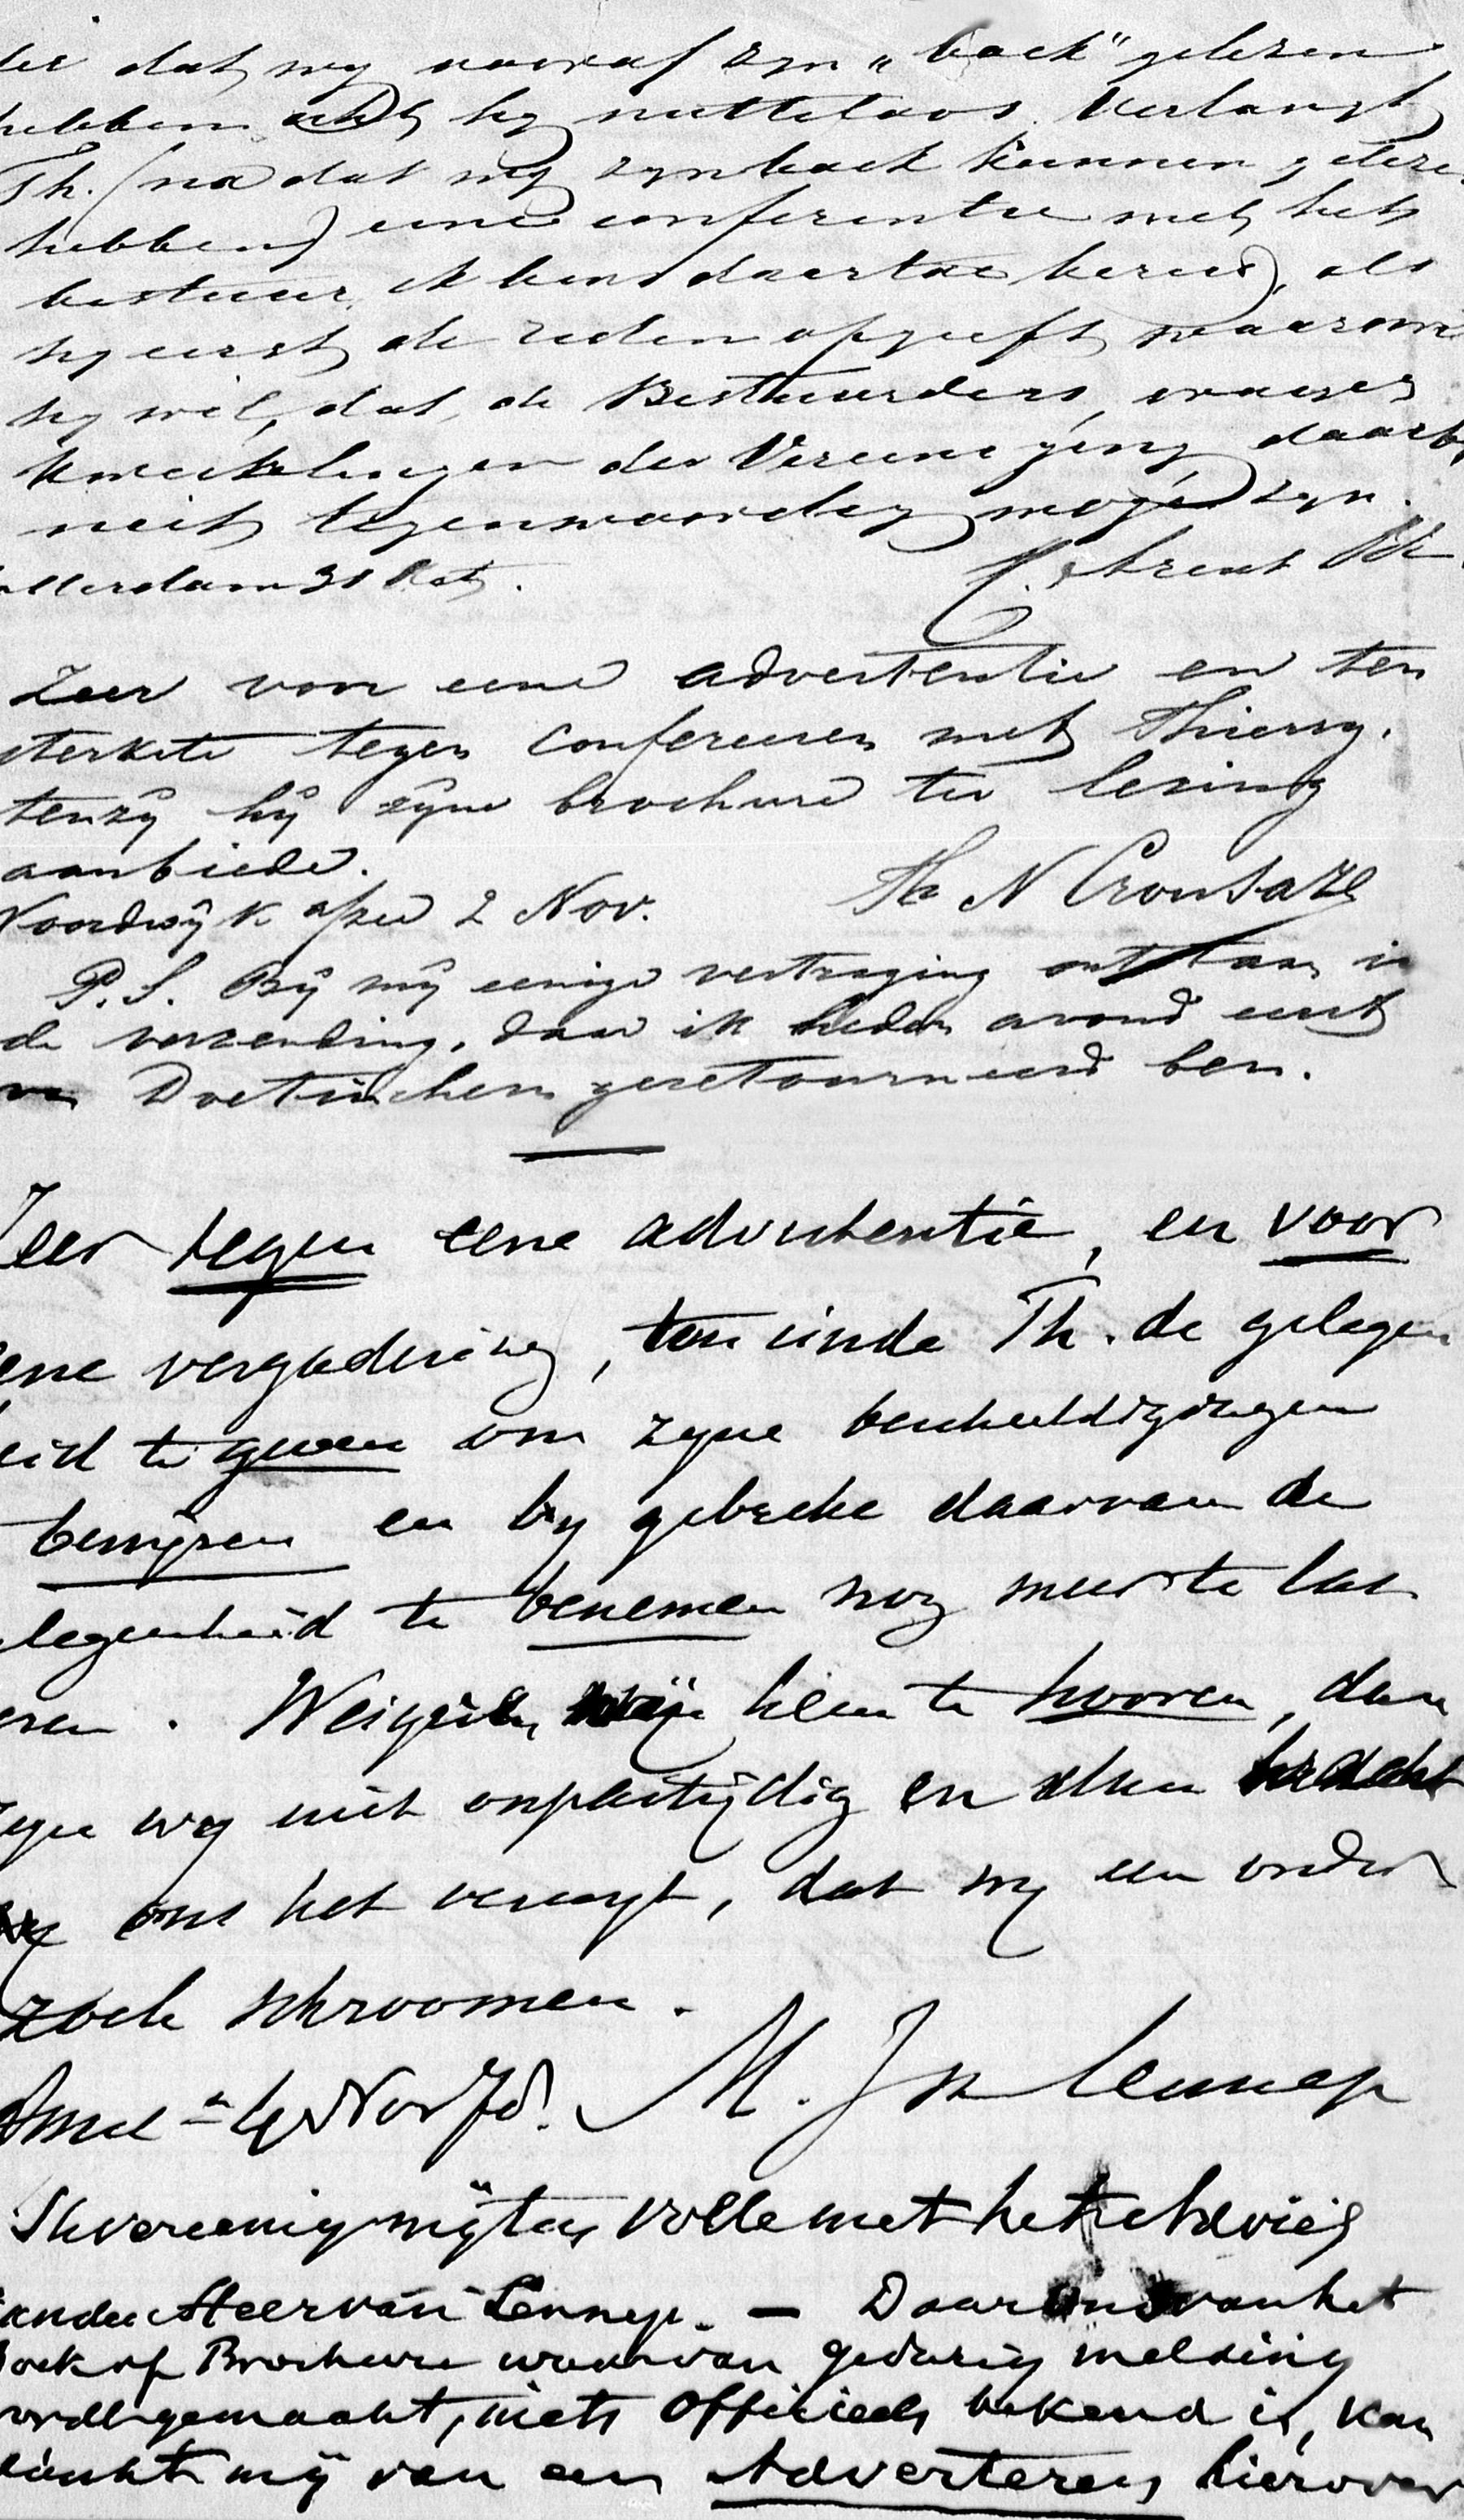 dat wy vooraf zyn „boek" gelezen
hebben acht hy nutteloos. Verlangt
Th. (na dat wy zyn boek kunnen geleze
hebben) eene conferentie met het
bestuur, ik ben daartoe bereid, als
hy eerst de reden opgeeft waarom
hy wil, dat de Bestuurders,
kweekelingen der Vereeniging daarby
niet tegenwoordig moge zyn.
tterdam 31 Oct.
Zeer voor eene advertentie en ten
sterkste tegen confereeren met Thierry,
tenzÿ hÿ zÿne brochure ter lezing
aanbiede.
Noordwÿk a/zee 2 Nov. Th N Crousaze
P.S. Bÿ mÿ eenige vertraging ontstaan in
de verzending, daar ik heden avond eerst
van Doetinchem geretourneerd ben.
Zeer tegen eene advertentie, en voor
eene vergadering, ten einde Th. de gelegen
eid te geven om zyne beschuldigingen
bewyzen en by gebreke daarvan de
legenheid te benemen nog meer te las
eren. Weigeren wÿ hem te hooren, dan
zyn wy niet onpartÿdig en
ons het verwyt, dat wy een onder
zoek schroomen.
Amst 4 Nov 78. M. J v Lennep
Ik vereenig mÿ ten volle met het Advies
van den Heer van Lennep. — Daar ons van het
Boek of Brochure waarvan gedurig melding
wordt gemaakt, niets Officieels bekend is, kan
dunkt mÿ van een Adverteren hierover